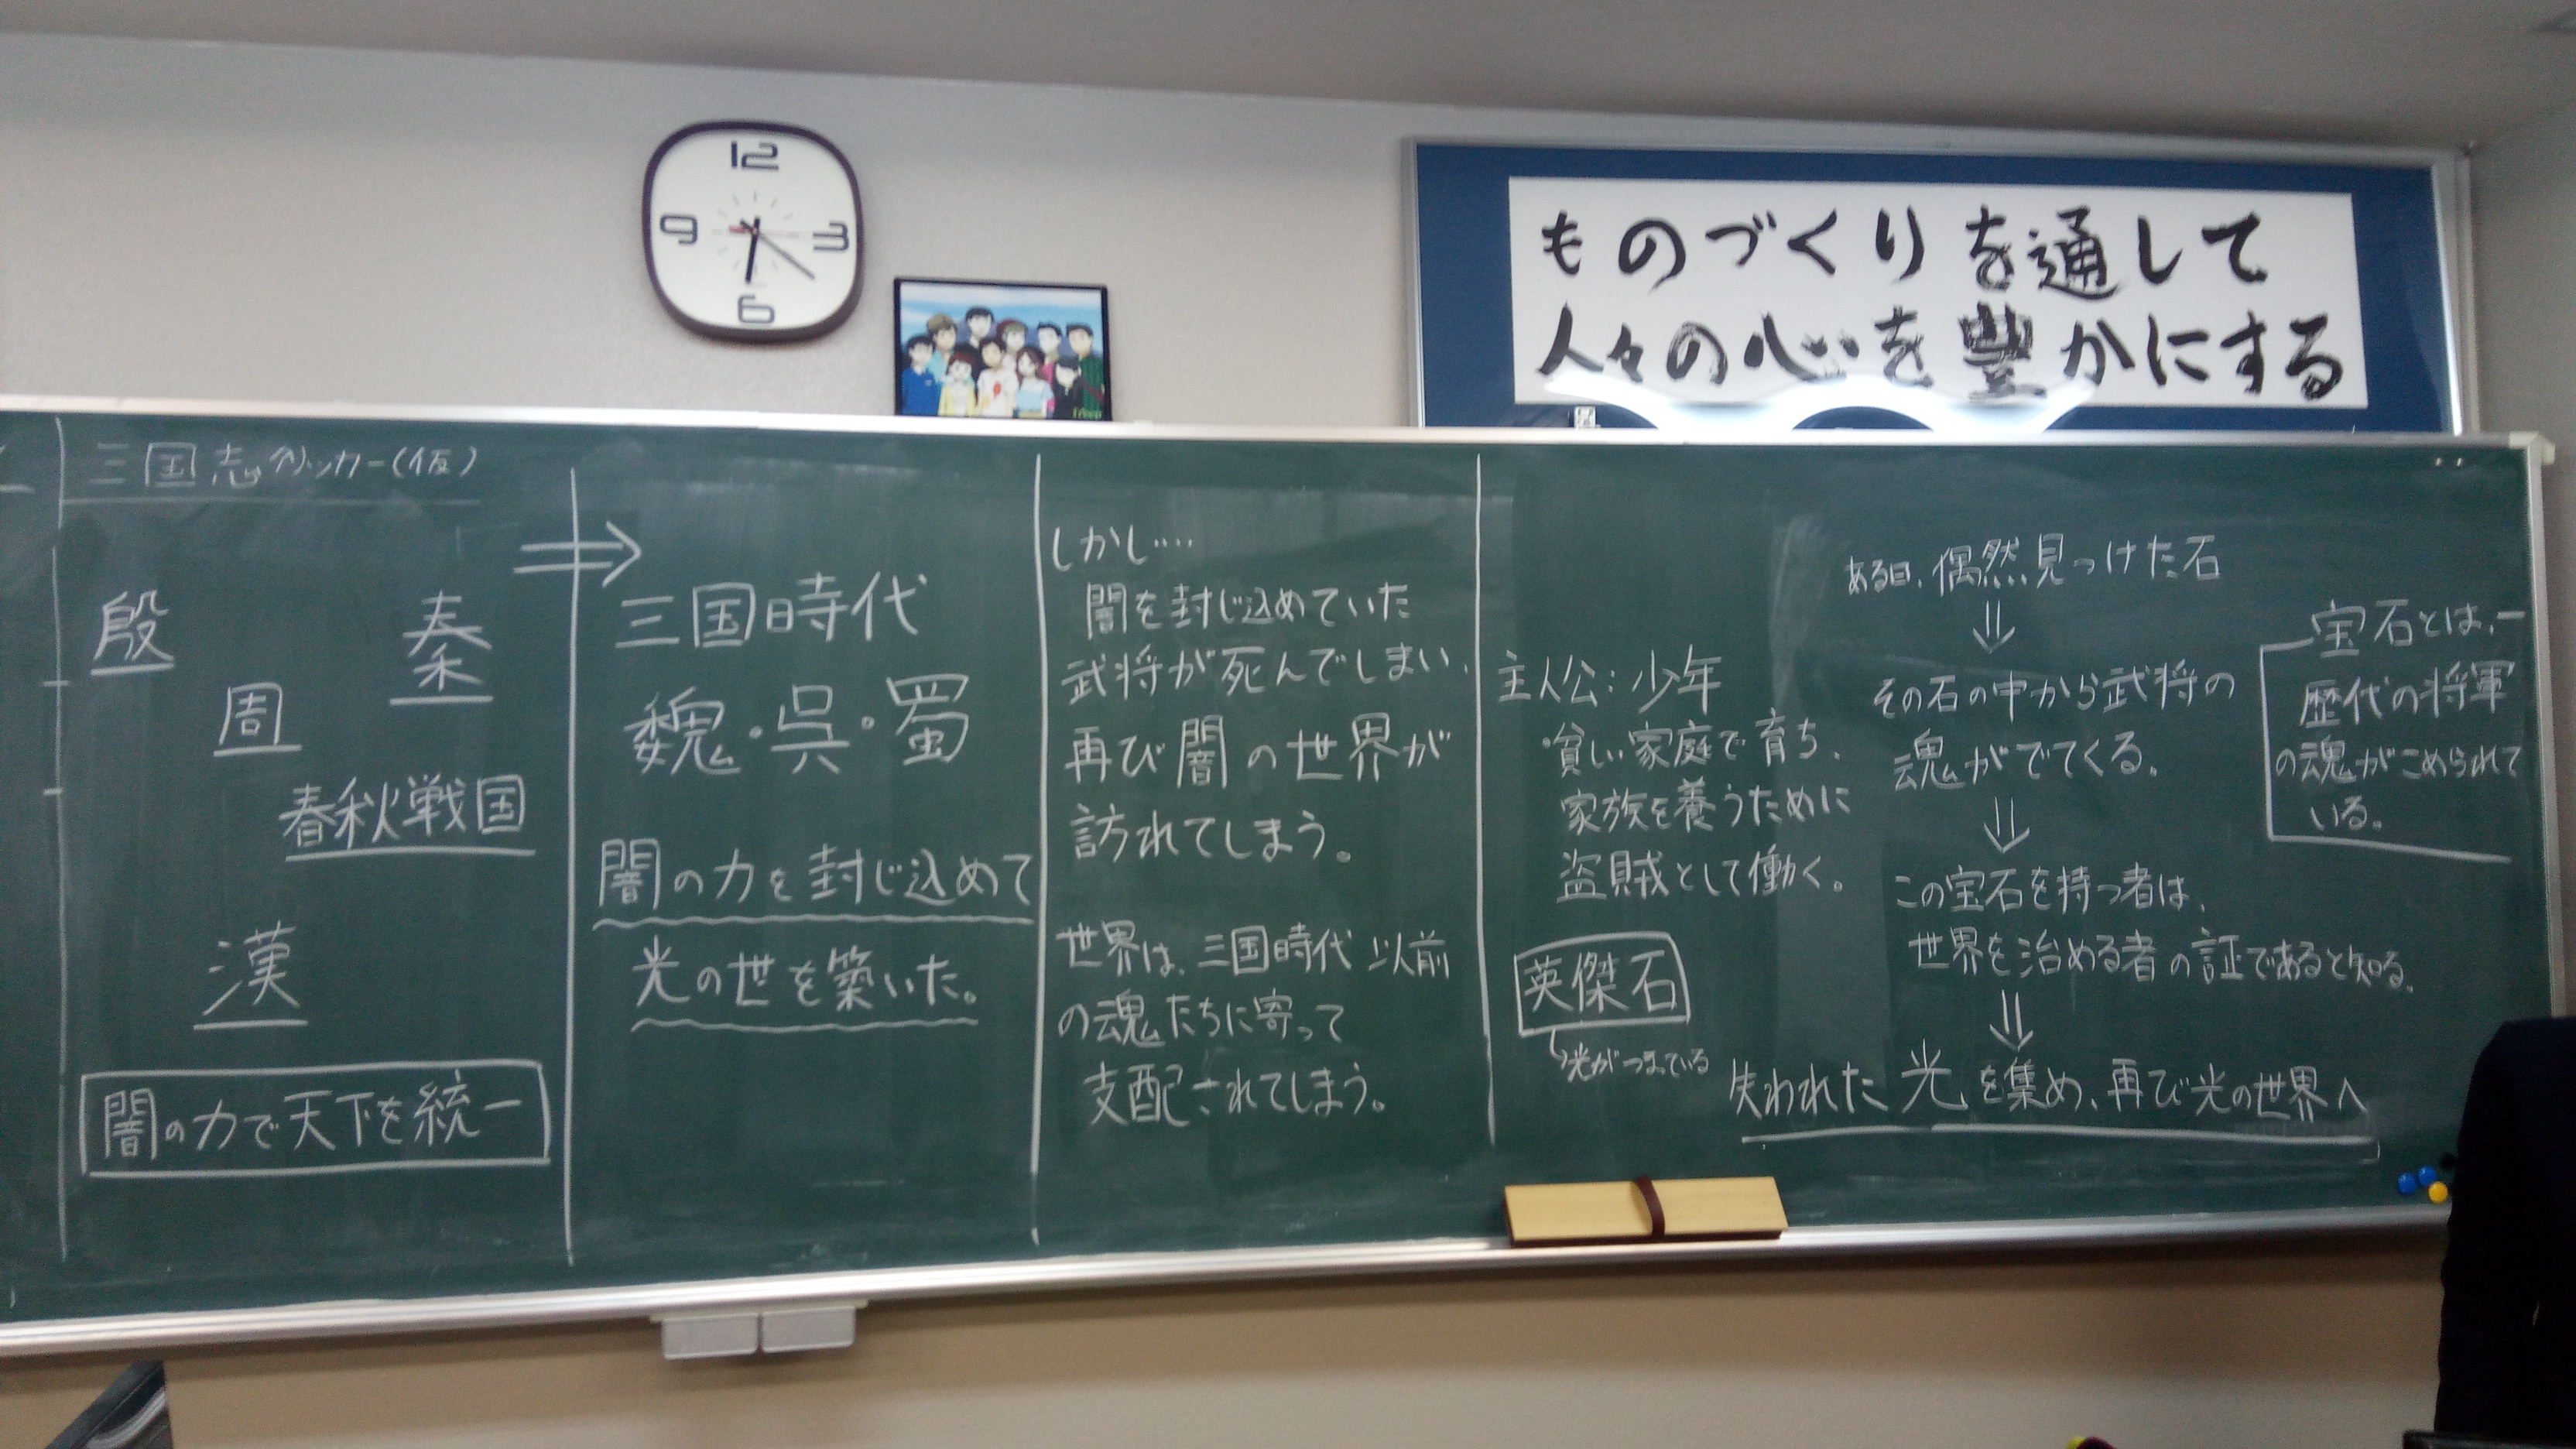 12
3
6
9
ものづくりを通して
人々の心を豊かにする
三国志クリッカー(仮)
殷
周
秦
春秋戦国
漢
闇の力で天下を統一
三国時代
魏・呉・蜀
闇の力を封じ込めて
光の世を築いた。
しかし‥‥
闇を封じ込めていた
武将が死んでしまい、
再び闇の世界が
訪れてしまう。
世界は、三国時代以前
の魂たちに寄って
支配されてしまう。
主人公：少年
・貧しい家庭で育ち、
家族を養うために
盗賊として働く。
英傑石
光がつまっている
ある日、偶然見つけた石
⇓
その石の中から武将の
魂がでてくる。
⇓
この宝石を持つ者は、
世界を治める者の証であると知る。
⇓
失われた光を集め、再び光の世界へ
宝石とは、
歴代の将軍
の魂がこめられて
いる。